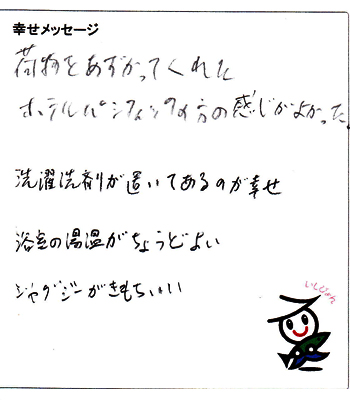 幸せメッセージ
荷物をあずかってくれた
ホテルパシフィックの方の感じがよかった。
洗濯洗剤が置いてあるのが幸せ
浴室の湯温がちょうどよい
ジャグジーがきもちいい